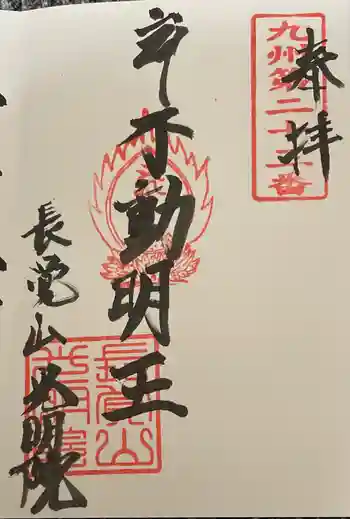 奉拝
九州第二十二番
不動明王
長覚山光明院